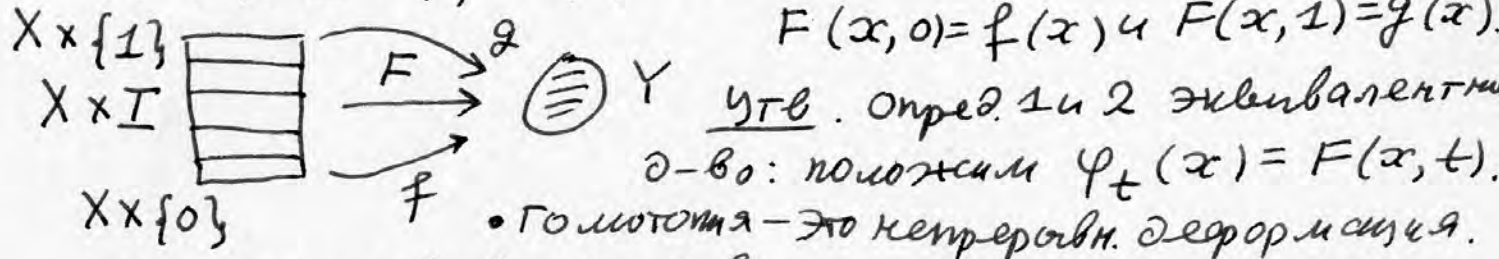 X×{1} F g F(x,0)=f(x) и F(x,1)=g(x).
X×I Y Утв. Опред. 1 и 2 эквивалентны
д-во: положим φ_t(x) = F(x,t).
X×{0} f • гомотопия – это непрерывн. деформация.